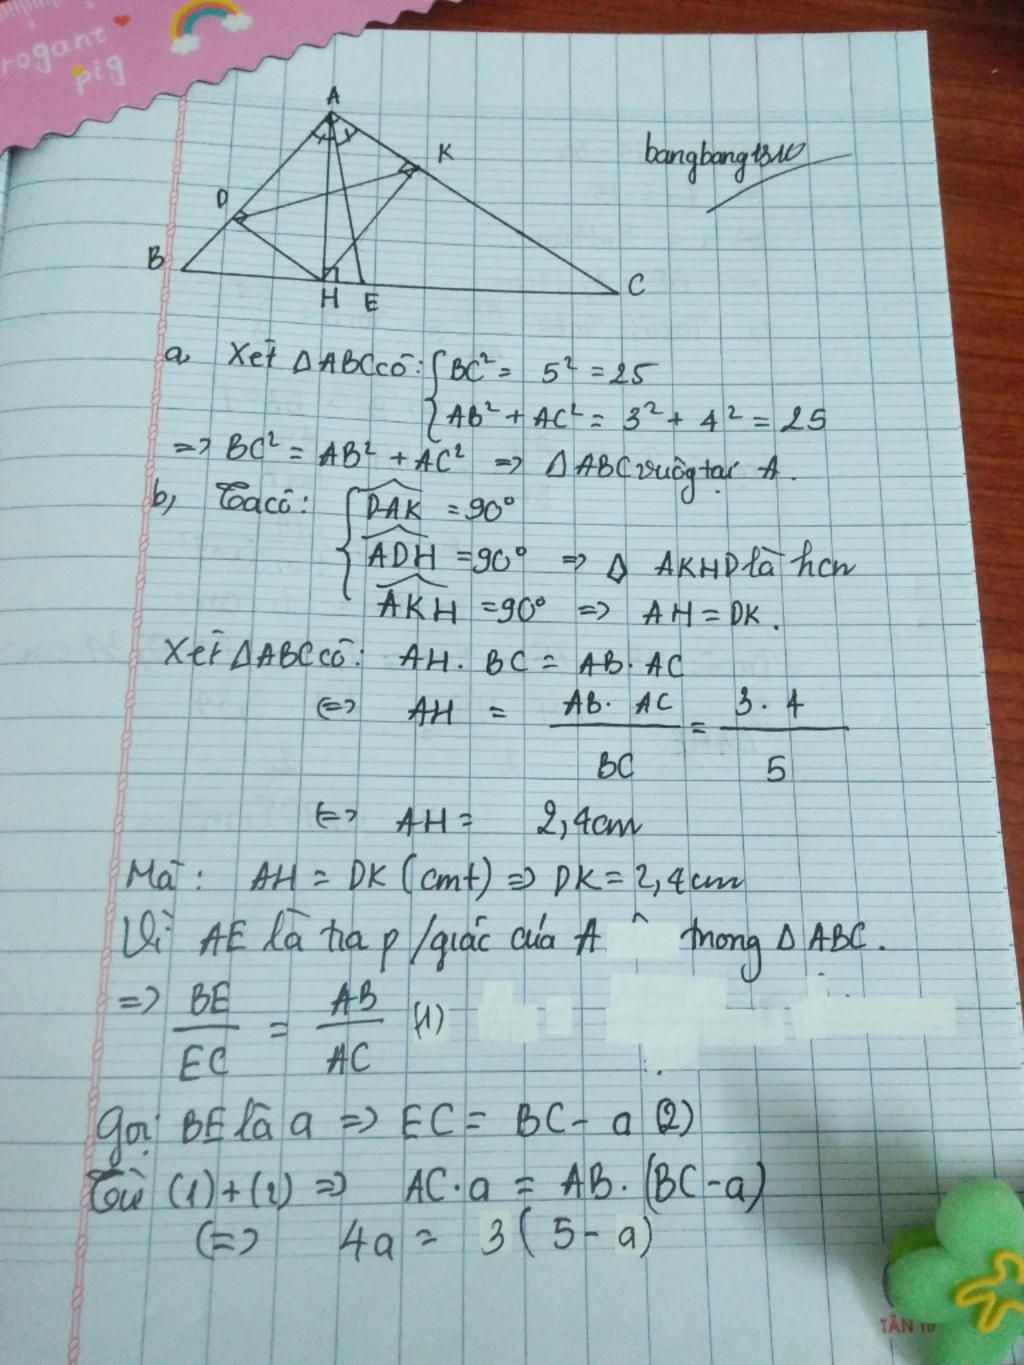 rogant
pig
A
K
bangbang1310
D
B
H E
C
a, Xét Δ ABC có: { BC² = 5² = 25
AB² + AC² = 3² + 4² = 25
=> BC² = AB² + AC² => Δ ABC vuôg tại A.
b, Ta có: { DAK = 90°
ADH = 90° => Δ AKHD là hcn
AKH = 90° => AH = DK.
Xét Δ ABC có: AH . BC = AB . AC
<=> AH = AB . AC / BC = 3 . 4 / 5
<=> AH = 2,4cm
Mà: AH = DK (cmt) => DK = 2,4cm
Vì AE là tia p/giác của A trong Δ ABC.
=> BE / EC = AB / AC (1)
Gọi BE là a => EC = BC - a (2)
Từ (1)+(2) => AC . a = AB . (BC - a)
<=> 4a = 3 ( 5 - a)
TÂN